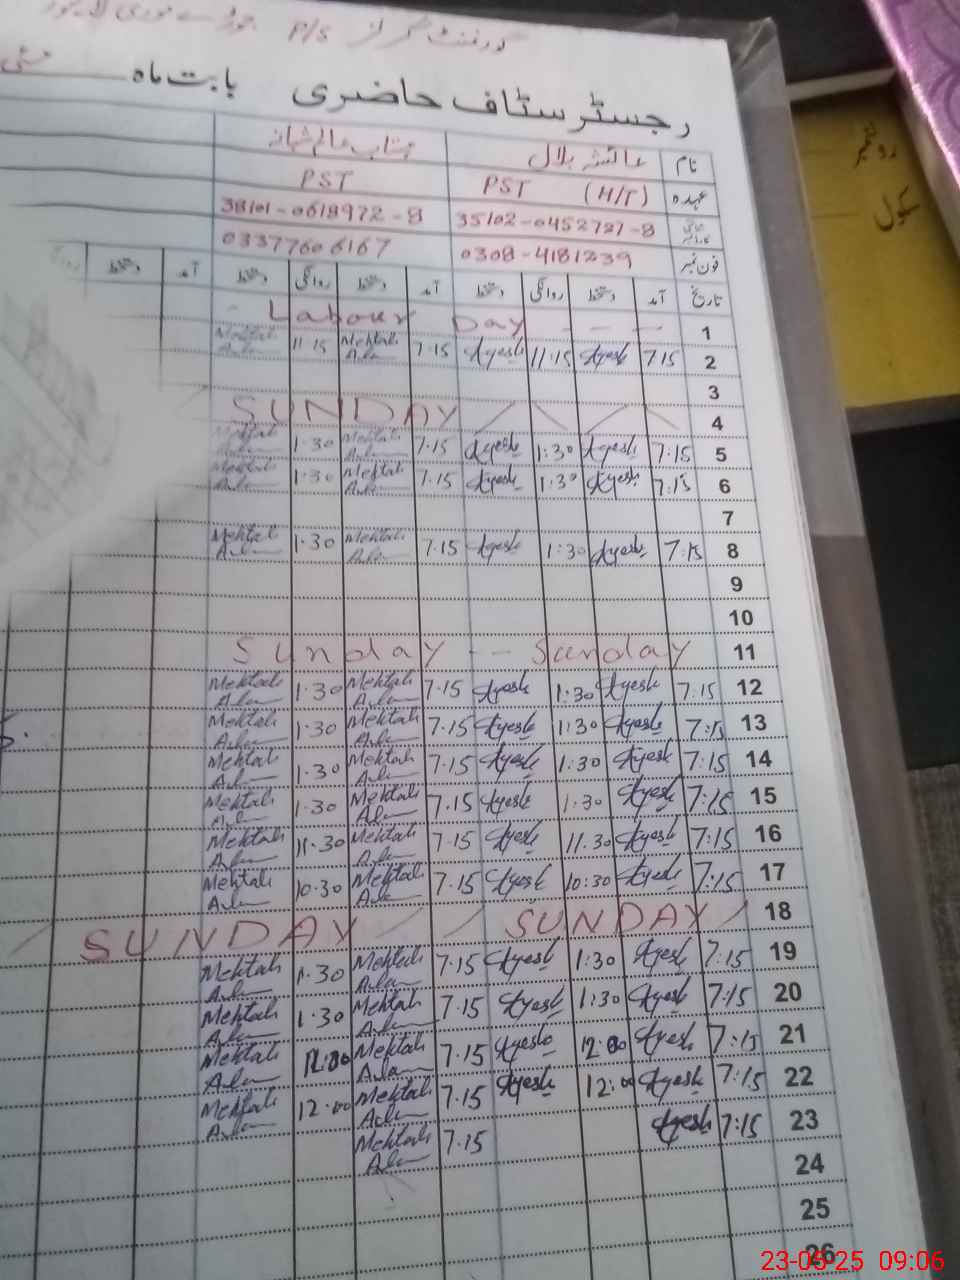 گورنمنٹ گرلز P/S
رجسٹر سٹاف حاضری بابت ماہ
نام عائشہ بلال مہتاب عالم
عہدہ PST (H/T) PST
35102-0452727-8 38101-0618972-8
فون نمبر 0308-4181239 03377606167
تاریخ آمد دستخط روانگی دستخط آمد دستخط روانگی دستخط آمد دستخط
1 - Labour Day - - -
2 7.15 Ayesh 11.15 Ayesh 7.15 Mehtab Alam 11.15 Mehtab Alam
3
4 SUNDAY
5 7.15 Ayesh 1:30 Ayesh 7.15 Mehtab Alam 1.30 Mehtab Alam
6 7:15 Ayesh 1:30 Ayesh 7.15 Mehtab Alam 1.30 Mehtab Alam
7
8 7:15 Ayesh 1:30 Ayesh 7.15 Mehtab Alam 1.30 Mehtab Alam
9
10
11 Sunday - - Sunday
12 7:15 Ayesh 1:30 Ayesh 7.15 Mehtab Alam 1.30 Mehtab Alam
13 7:15 Ayesh 1:30 Ayesh 7.15 Mehtab Alam 1.30 Mehtab Alam
14 7:15 Ayesh 1:30 Ayesh 7.15 Mehtab Alam 1.30 Mehtab Alam
15 7:15 Ayesh 1:30 Ayesh 7.15 Mehtab Alam 1.30 Mehtab Alam
16 7:15 Ayesh 11.30 Ayesh 7.15 Mehtab Alam 11.30 Mehtab Alam
17 7:15 Ayesh 10:30 Ayesh 7.15 Mehtab Alam 10.30 Mehtab Alam
18 SUNDAY SUNDAY
19 7:15 Ayesh 1:30 Ayesh 7.15 Mehtab Alam 1.30 Mehtab Alam
20 7:15 Ayesh 1:30 Ayesh 7.15 Mehtab Alam 1.30 Mehtab Alam
21 7:15 Ayesh 12:00 Ayesh 7.15 Mehtab Alam 12:00 Mehtab Alam
22 7:15 Ayesh 12:00 Ayesh 7.15 Mehtab Alam 12.00 Mehtab Alam
23 7:15 Ayesh 7.15 Mehtab Alam
24
25
26
رولنمبر
سکول
23-05-25 09:06